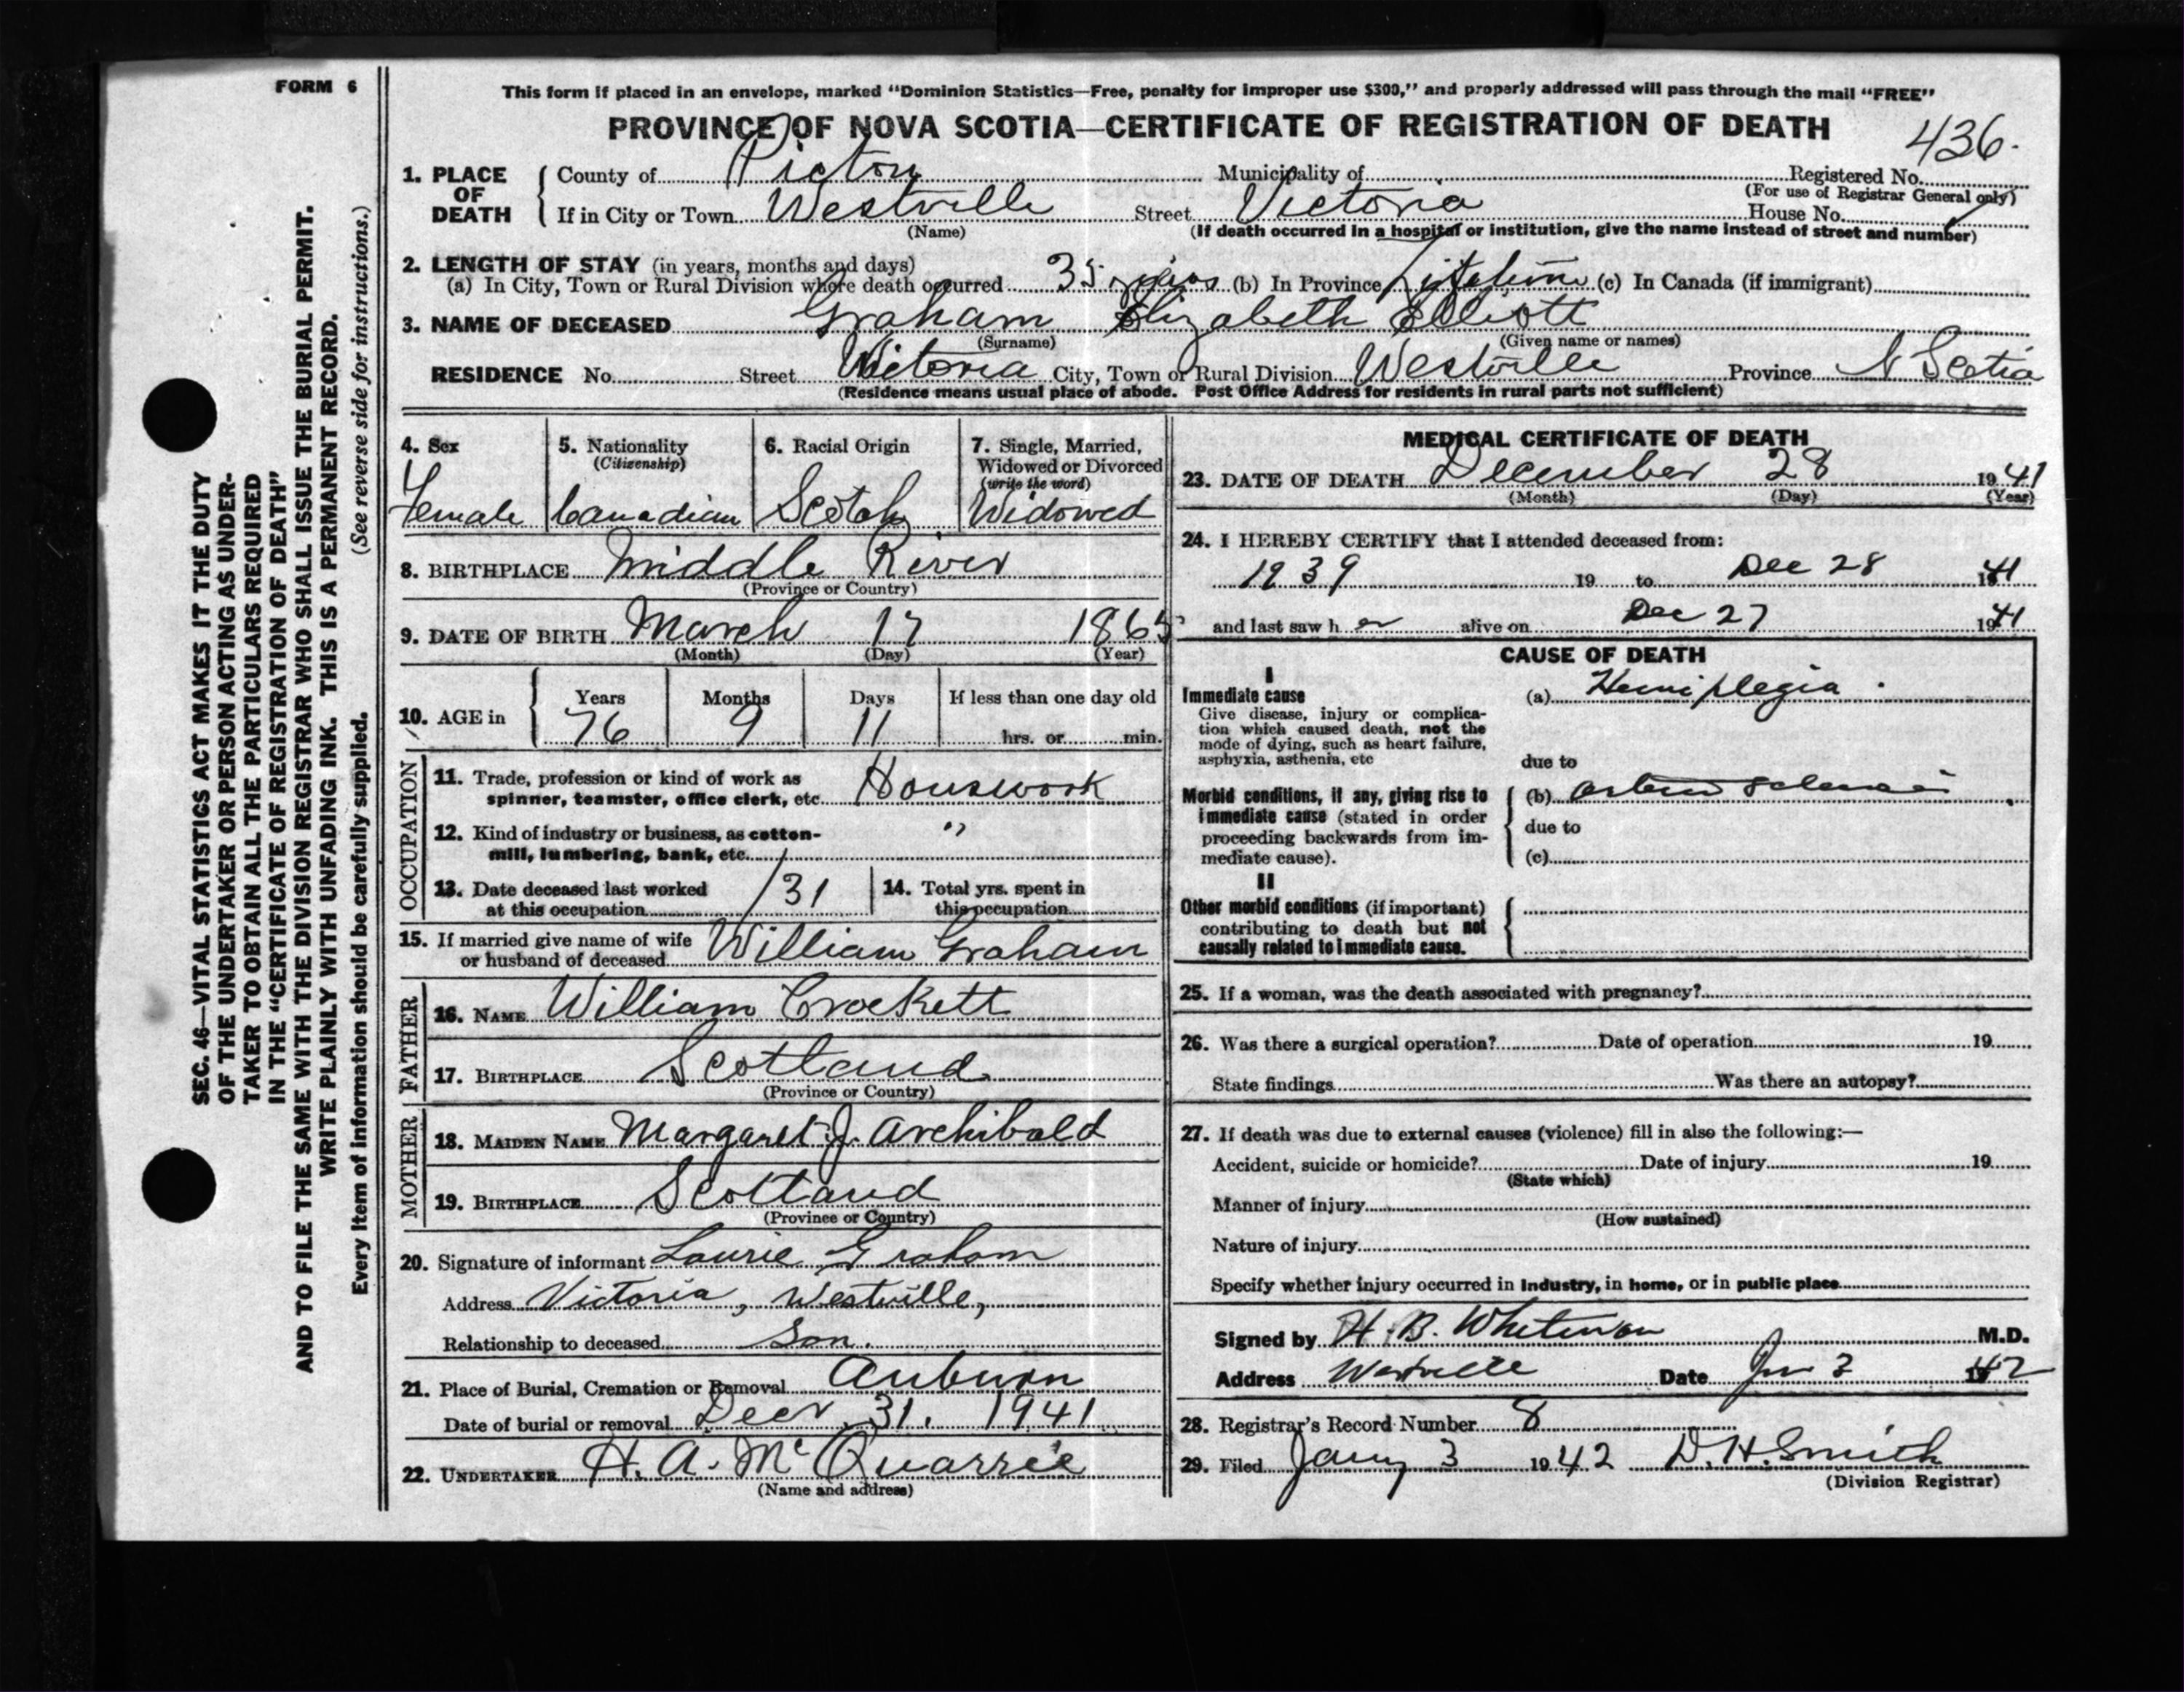 FORM 6
This form if placed in an envelope, marked "Dominion Statistics—Free, penalty for improper use $300," and properly addressed will pass through the mail "FREE"
PROVINCE OF NOVA SCOTIA—CERTIFICATE OF REGISTRATION OF DEATH
436.
1. PLACE OF DEATH
County of Pictou Municipality of Registered No.
(For use of Registrar General only)
If in City or Town Westville Street Victoria House No.
(Name) (If death occurred in a hospital or institution, give the name instead of street and number)
2. LENGTH OF STAY (in years, months and days)
(a) In City, Town or Rural Division where death occurred 35 years (b) In Province Lifetime (c) In Canada (if immigrant)
3. NAME OF DECEASED Graham Elizabeth Elliott
(Surname) (Given name or names)
RESIDENCE No. Street Victoria City, Town or Rural Division Westville Province N Scotia
(Residence means usual place of abode. Post Office Address for residents in rural parts not sufficient)
4. Sex
Female
5. Nationality
(Citizenship)
Canadian
6. Racial Origin
Scotch
7. Single, Married,
Widowed or Divorced
(write the word)
Widowed
8. BIRTHPLACE Middle River
(Province or Country)
9. DATE OF BIRTH March 17 1865
(Month) (Day) (Year)
10. AGE in
Years Months Days If less than one day old
76 9 11 hrs. or min.
OCCUPATION
11. Trade, profession or kind of work as
spinner, teamster, office clerk, etc. Houswork
12. Kind of industry or business, as cotton-
mill, lumbering, bank, etc. "
13. Date deceased last worked
at this occupation /31
14. Total yrs. spent in
this occupation
15. If married give name of wife
or husband of deceased William Graham
FATHER
16. NAME William Crockett
17. BIRTHPLACE Scotland
(Province or Country)
MOTHER
18. MAIDEN NAME Margaret J. Archibald
19. BIRTHPLACE Scotland
(Province or Country)
20. Signature of informant Laurie Graham
Address Victoria, Westville,
Relationship to deceased Son.
21. Place of Burial, Cremation or Removal Auburn
Date of burial or removal Decr. 31. 1941
22. UNDERTAKER H. A. McQuarrie
(Name and address)
MEDICAL CERTIFICATE OF DEATH
23. DATE OF DEATH December 28 1941
(Month) (Day) (Year)
24. I HEREBY CERTIFY that I attended deceased from:
1939 19 to Dec 28 1941
and last saw her alive on Dec 27 1941
CAUSE OF DEATH
I
Immediate cause
Give disease, injury or complica-
tion which caused death, not the
mode of dying, such as heart failure,
asphyxia, asthenia, etc
(a) Hemiplegia
due to
Morbid conditions, if any, giving rise to
immediate cause (stated in order
proceeding backwards from im-
mediate cause).
(b)
due to
(c)
II
Other morbid conditions (if important)
contributing to death but not
causally related to immediate cause.
25. If a woman, was the death associated with pregnancy?
26. Was there a surgical operation? Date of operation 19
State findings Was there an autopsy?
27. If death was due to external causes (violence) fill in also the following:—
Accident, suicide or homicide? Date of injury 19
(State which)
Manner of injury
(How sustained)
Nature of injury
Specify whether injury occurred in industry, in home, or in public place
Signed by H. B. Whitman M.D.
Address Westville Date Jan 3 1942
28. Registrar's Record Number 8
29. Filed Jany 3 1942 D. H. Smith
(Division Registrar)
SEC. 46—VITAL STATISTICS ACT MAKES IT THE DUTY
OF THE UNDERTAKER OR PERSON ACTING AS UNDER-
TAKER TO OBTAIN ALL THE PARTICULARS REQUIRED
IN THE "CERTIFICATE OF REGISTRATION OF DEATH"
AND TO FILE THE SAME WITH THE DIVISION REGISTRAR WHO SHALL ISSUE THE BURIAL PERMIT.
WRITE PLAINLY WITH UNFADING INK. THIS IS A PERMANENT RECORD.
Every item of information should be carefully supplied. (See reverse side for instructions.)